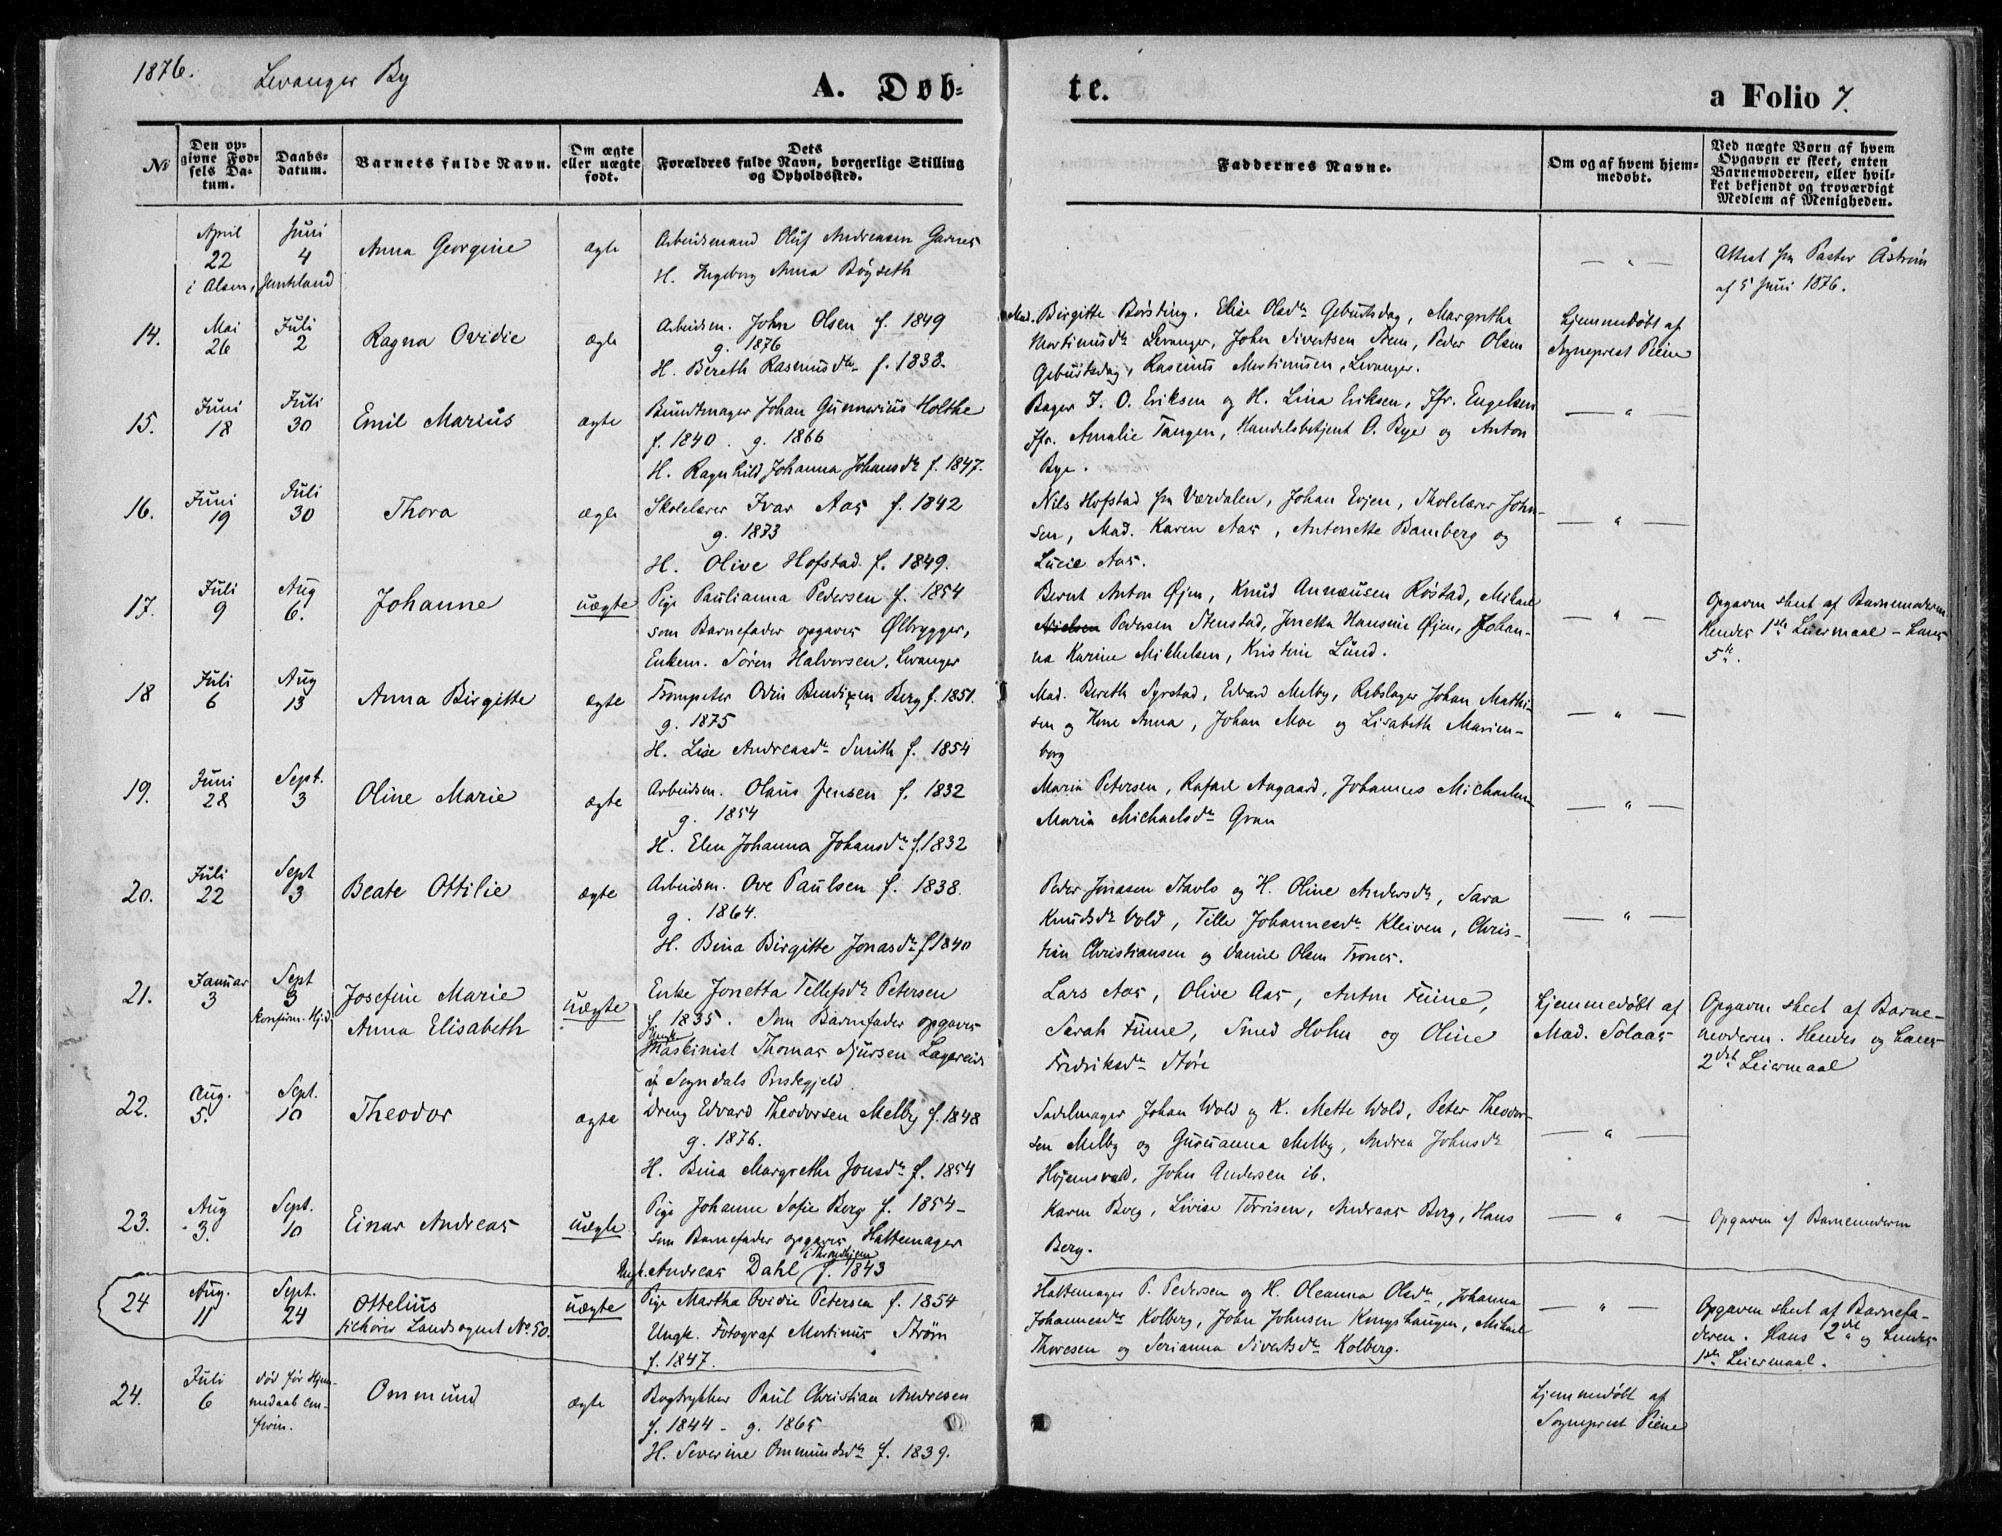 1876.
Levanger By
A. Døb-
te.
a Folio 7.
No
Den op-
givne Fød-
sels Da-
tum.
Daabs-
datum.
Barnets fulde Navn.
Om ægte
eller uægte
født.
Dets
Forældres fulde Navn, borgerlige Stilling
og Opholdssted.
Faddernes Navne.
Om og af hvem hjem-
medøbt.
Ved uægte Børn af hvem
Opgaven er skeet, enten
Barnemoderen, eller hvil-
ket bekjendt og troværdigt
Medlem af Menigheden.
April
22
i Alsen, Jemtland
Juni
4
Anna Georgine
ægte
Arbeidsmand Oluf Andreasen Garnes
H. Ingeborg Anna Bøgseth
— " —
Attest fra Pastor Åström
af 5 Juni 1876.
14.
Mai
26
Juli
2
Ragna Ovidie
ægte
Arbeidsm. John Olsen f. 1849
g. 1876
H. Bereth Rasmusdtr f. 1838.
Mad. Birgitte Børsting. Elise Olsdtr Geburtsdag, Margrethe
Mortinusdtr Levanger, John Sivertsen Stem, Peder Olsen
Geburtsdag, Rasmus Mortinusen, Levanger.
Hjemmedøbt af
Sogneprest Piene
15.
Juni
18
Juli
30
Emil Marius
ægte
Bundtmager Johan Gunnerius Holthe
f. 1840. g. 1866
H. Ragnhild Johanna Johansdtr f. 1847.
Bager I. O. Eriksen og H. Lina Eriksen, Jfr. Engelsen
Jfr. Amalie Tangen, Handelsbetjent O. Bye og Anton
Bye.
— " —
16.
Juni
19
Juli
30
Thora
ægte
Skolelærer Ivar Aas f. 1842
g. 1873
H. Olive Hofstad f. 1849.
Nils Hofstad fra Værdalen, Johan Evjen, Skolelærer John-
sen, Mad. Karen Aas, Antonette Bamberg og
Lucie Aas.
— " —
17.
Juli
9
Aug
6.
Johanne
uægte
Pige Paulianna Pedersen f. 1854
som Barnefader opgaves Ølbrygger,
Enkem. Søren Halvorsen, Levanger
Bernt Anton Øjen, Knud Annæusen Røstad, Mikael
Nielsen Pedersen Stenstad, Jonetta Hansine Øjen, Johan-
na Karine Mikkelsen, Kristine Lund.
— " —
Opgaven skeet af Barnemoderen
Hendes 1ste Leiermaal - hans
5te.
18
Juli
6
Aug
13
Anna Birgitte
ægte
Trompeter Odin Bendixen Berg f. 1851.
g. 1875
H. Lise Andreasdtr Smith f. 1854
Mad. Bereth Syrstad, Edvard Melby, Rebslager Johan Mathi-
sen og Kone Anna, Johan Moe og Lisabeth Marien-
borg
— " —
19.
Juni
28
Sept.
3
Oline Marie
ægte
Arbeidsm. Olaus Jensen f. 1832
g. 1854
H. Elen Johanna Johansdtr f. 1832
Maria Petersen, Rafael Aagaard, Johannes Michaelsen
Maria Michaelsdtr Gran
— " —
20.
Juli
22
Sept
3
Beate Ottilie
ægte
Arbeidsm. Ove Paulsen f. 1838.
g. 1864.
H. Bina Birgitte Jonasdtr f. 1840
Peder Jonasen Stavlo og H. Oline Andersdtr, Sara
Knudsdtr Vold, Tille Johannesdtr Kleiven, Chris-
tian Christiansen og Daniel Olsen Trones.
— " —
21.
Januar
3
Sept
3
Konfirm. Hjd.
Josefine Marie
Anna Elisabeth
uægte
Enke Jonetta Tellefsdtr Petersen
f. 1835. Som Barnefader opgaves
Maskinist Thomas Sjursen Lagereid
af Sogndals Prstegjeld.
Lars Aas, Olive Aas, Anton Finne,
Sarah Finne, Smed Hohn og Oline
Fredriksdtr Støre
Hjemmedøbt af
Mad. Solaas
Opgaven skeet af Barne-
moderen. Hendes og hans
2det Leiermaal
22.
Aug.
5.
Sept.
10
Theodor
ægte
Dreng Edvard Theodorsen Melby f. 1848
g. 1876.
H. Bina Margrethe Jonsdtr f. 1854
Sadelmager Johan Wold og K. Mette Wold, Peter Theodor-
sen Melby og Gurianna Melby, Andrea Johnsdtr
Hojemsvald, John Andersen ib.
— " —
23.
Aug
3.
Sept.
10
Einar Andreas
uægte
Pige Johanne Sofie Berg f. 1854 -
som Barnefader opgaves Hattemager
i Throndhjem
Ungk. Andreas Dahl f. 1843
Karen Berg, Lovise Tørrisen, Andreas Berg, Hans
Berg.
— " —
Opgaven af Barnemoderen
24
Aug.
11
Sept.
24
Ottelius
tilhører Landsognet No. 50.
uægte
Pige Martha Ovidie Petersen f. 1854
Ungk. Fotograf Mortinus Strøm
f. 1847.
Hattemager P. Pedersen og H. Oleanna Olsdtr, Johanna
Johannesdtr Kolberg, John Johnsen Kongshaugen, Mikael
Thoresen og Serianna Sivertsdtr Kolberg.
— " —
Opgaven skeet af Barnefa-
deren. Hans 2det og hendes
1ste Leiermaal.
24.
Juli
6
død før Hjem-
medaab con-
firm.
Ommund
ægte
Bogtrykker Paul Christian Andresen
f. 1844 - g. 1865
H. Severine Ommundsdtr f. 1839.
Hjemmedøbt af
Sogneprest Piene